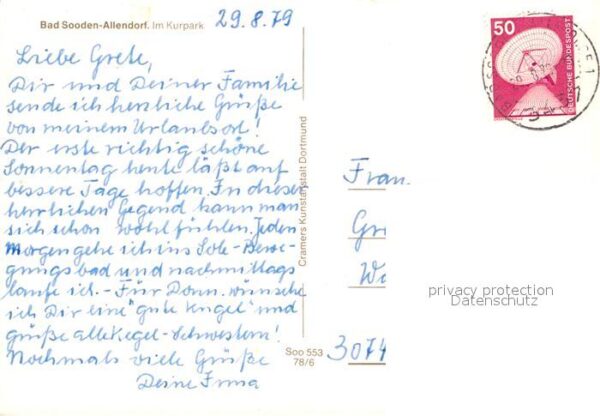 Bad Sooden-Allendorf. Im Kurpark
29.8.79
Liebe Grete,
Dir und Deiner Familie
sende ich herzliche Grüße
von meinem Urlaubsort!
Der erste richtig schöne
Sonnentag heute läßt auf
bessere Tage hoffen. In dieser
herrlichen Gegend kann man
sich schon wohl fühlen. Jeden
morgen gehe ich ins Sole-Bewe-
gungsbad und nachmittags
laufe ich. - Für Donn. wünsche
ich Dir eine "gute Kugel" und
grüße alle Kegel-Schwestern!
Nochmals viele Grüße
Deine Irma
Cramers Kunstanstalt Dortmund
Soo 553
78/6
50
DEUTSCHE BUNDESPOST
Frau
Gr
privacy protection
Datenschutz
3074